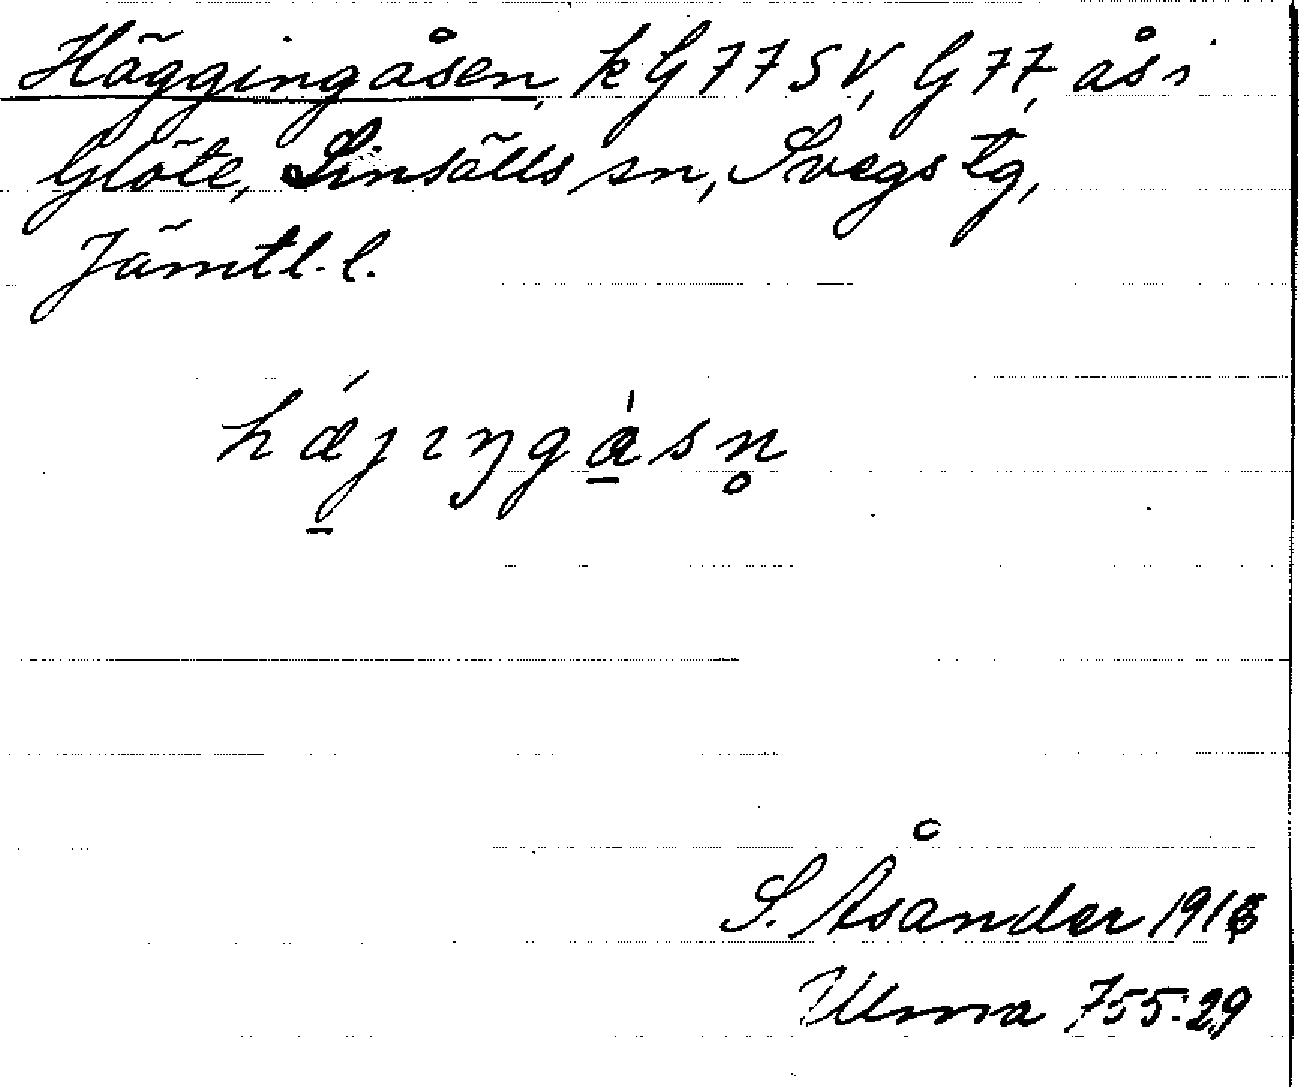 Häggingåsen, k G 77 SV, G 77, ås i
Glöte, Linsälls sn, Svegs tg,
Jämtl. l.
hæjıŋgåsn̥
S. Åsander
Ulma 755:29